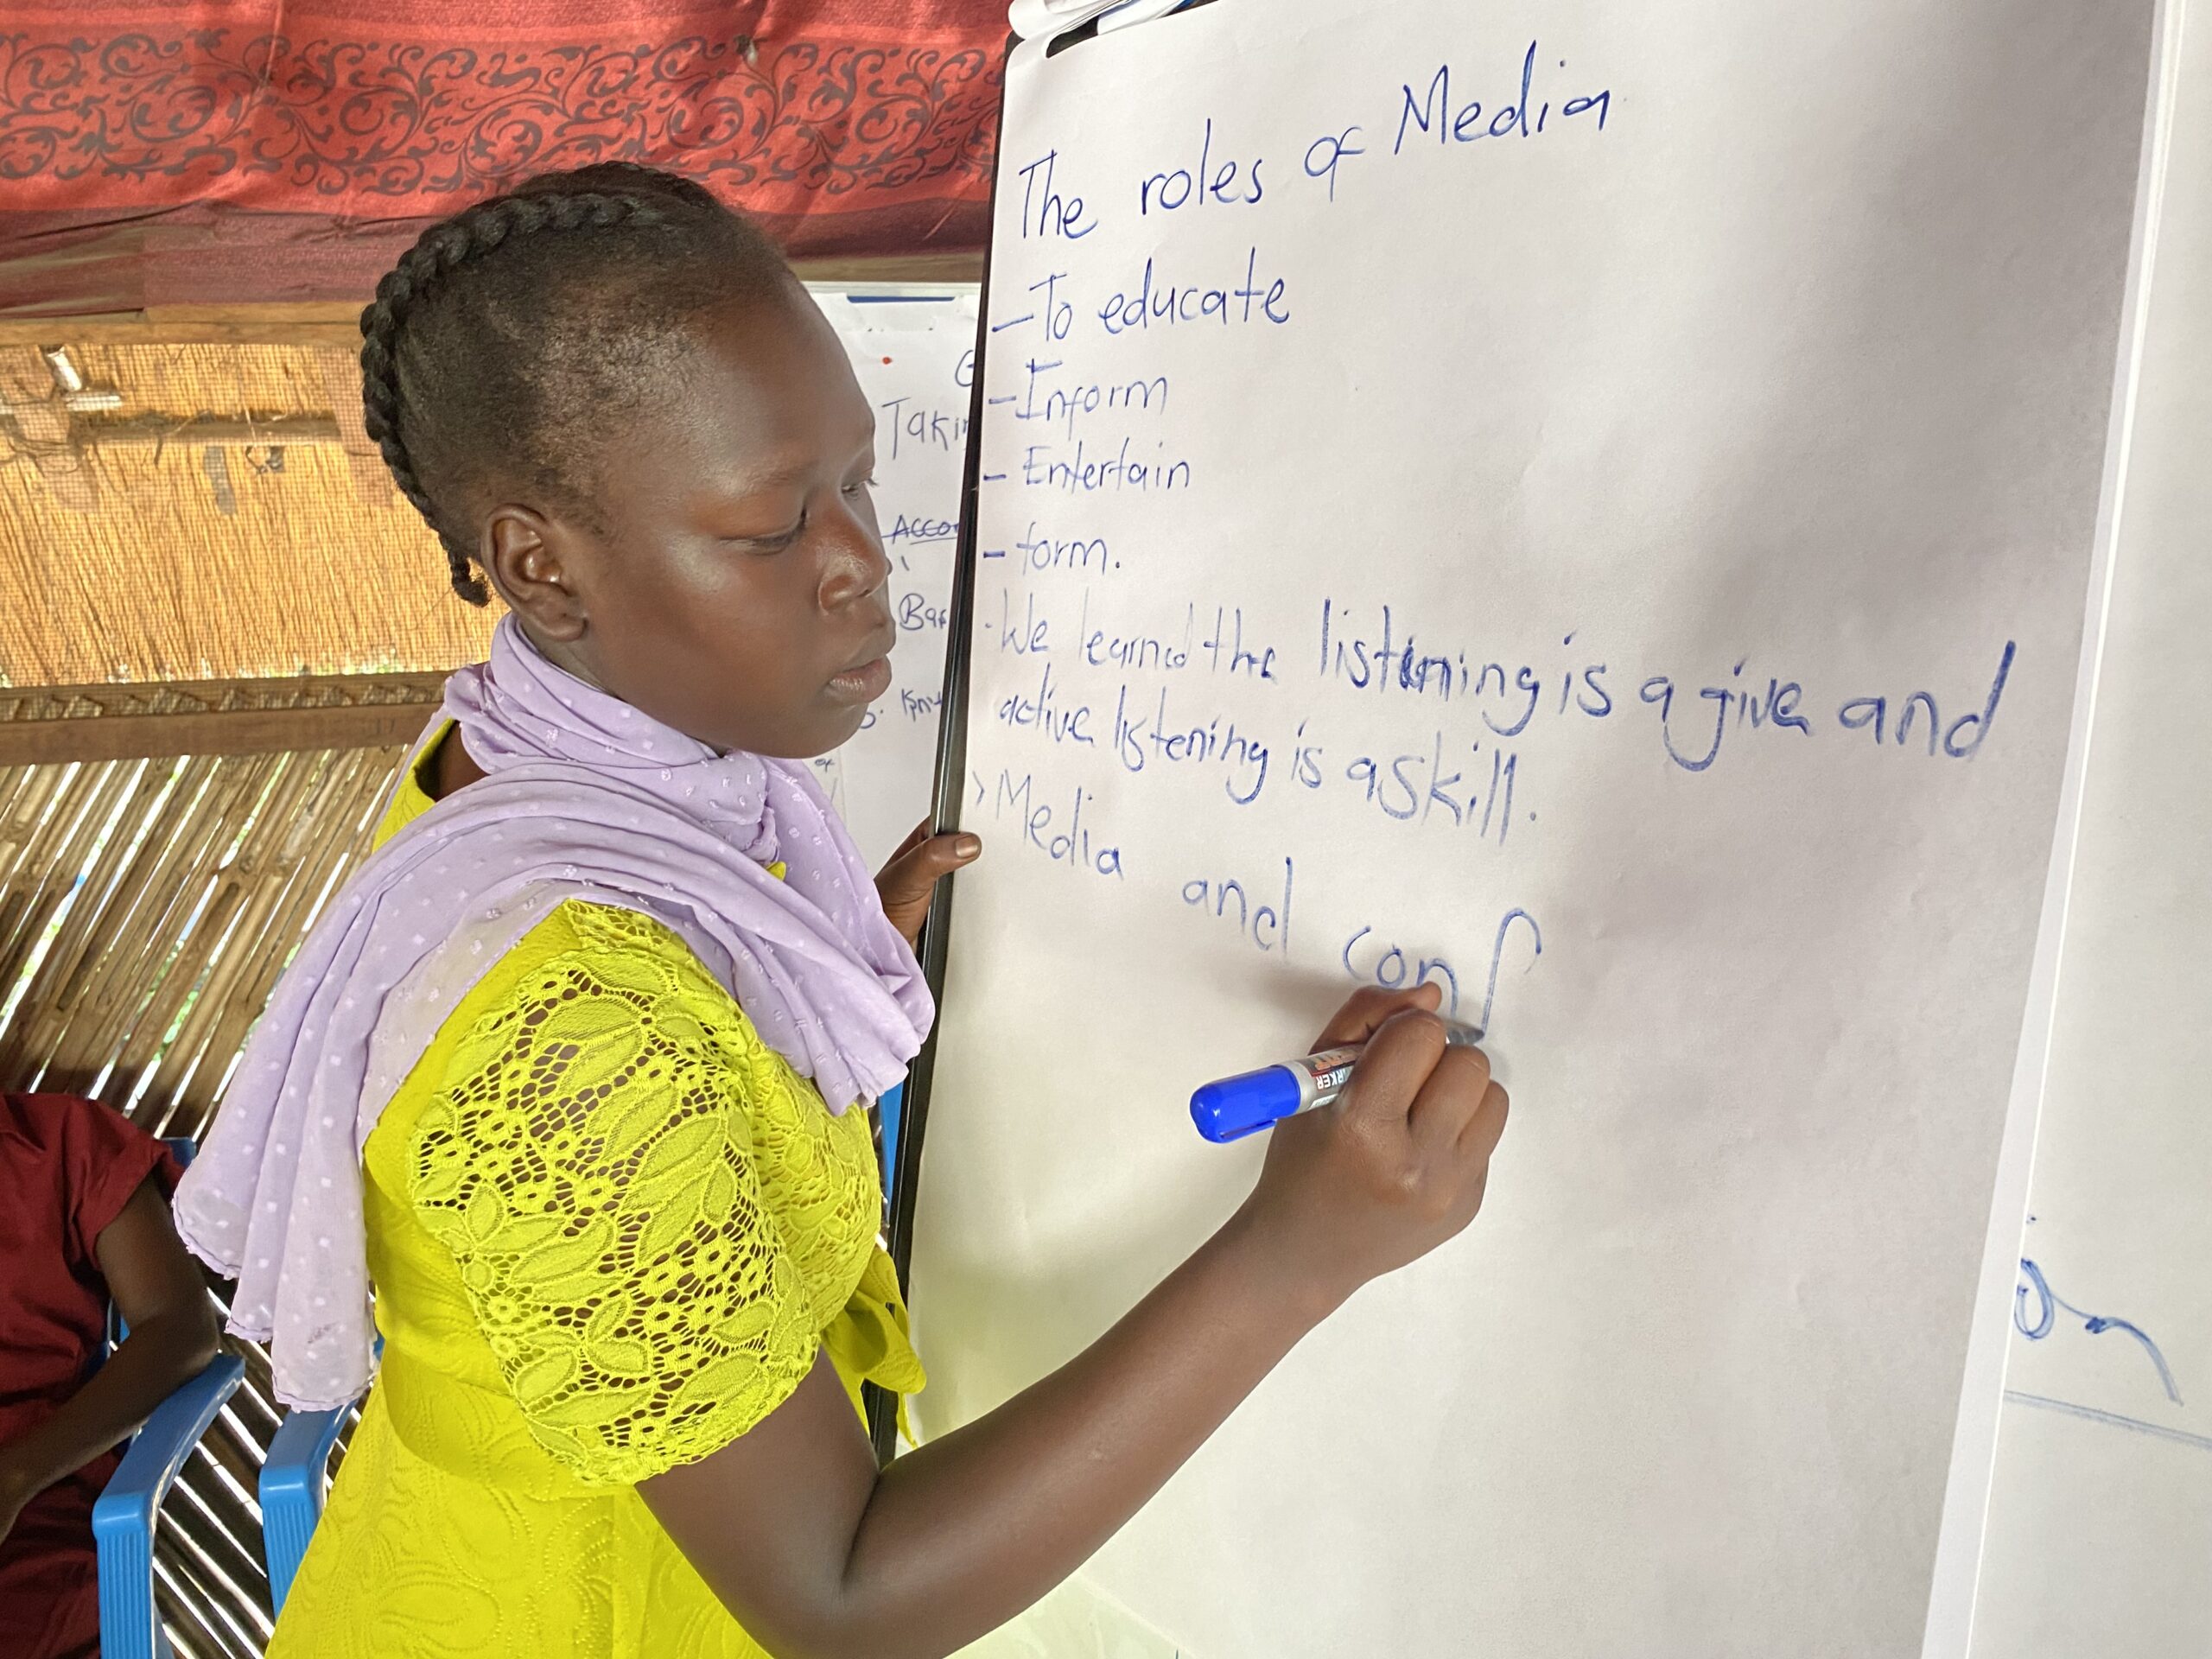 The roles of Media
- To educate
- Inform
- Entertain
- form.
· We learned the listening is a give and
active listening is a skill.
> Media and conf
Takin
Accor
RKER